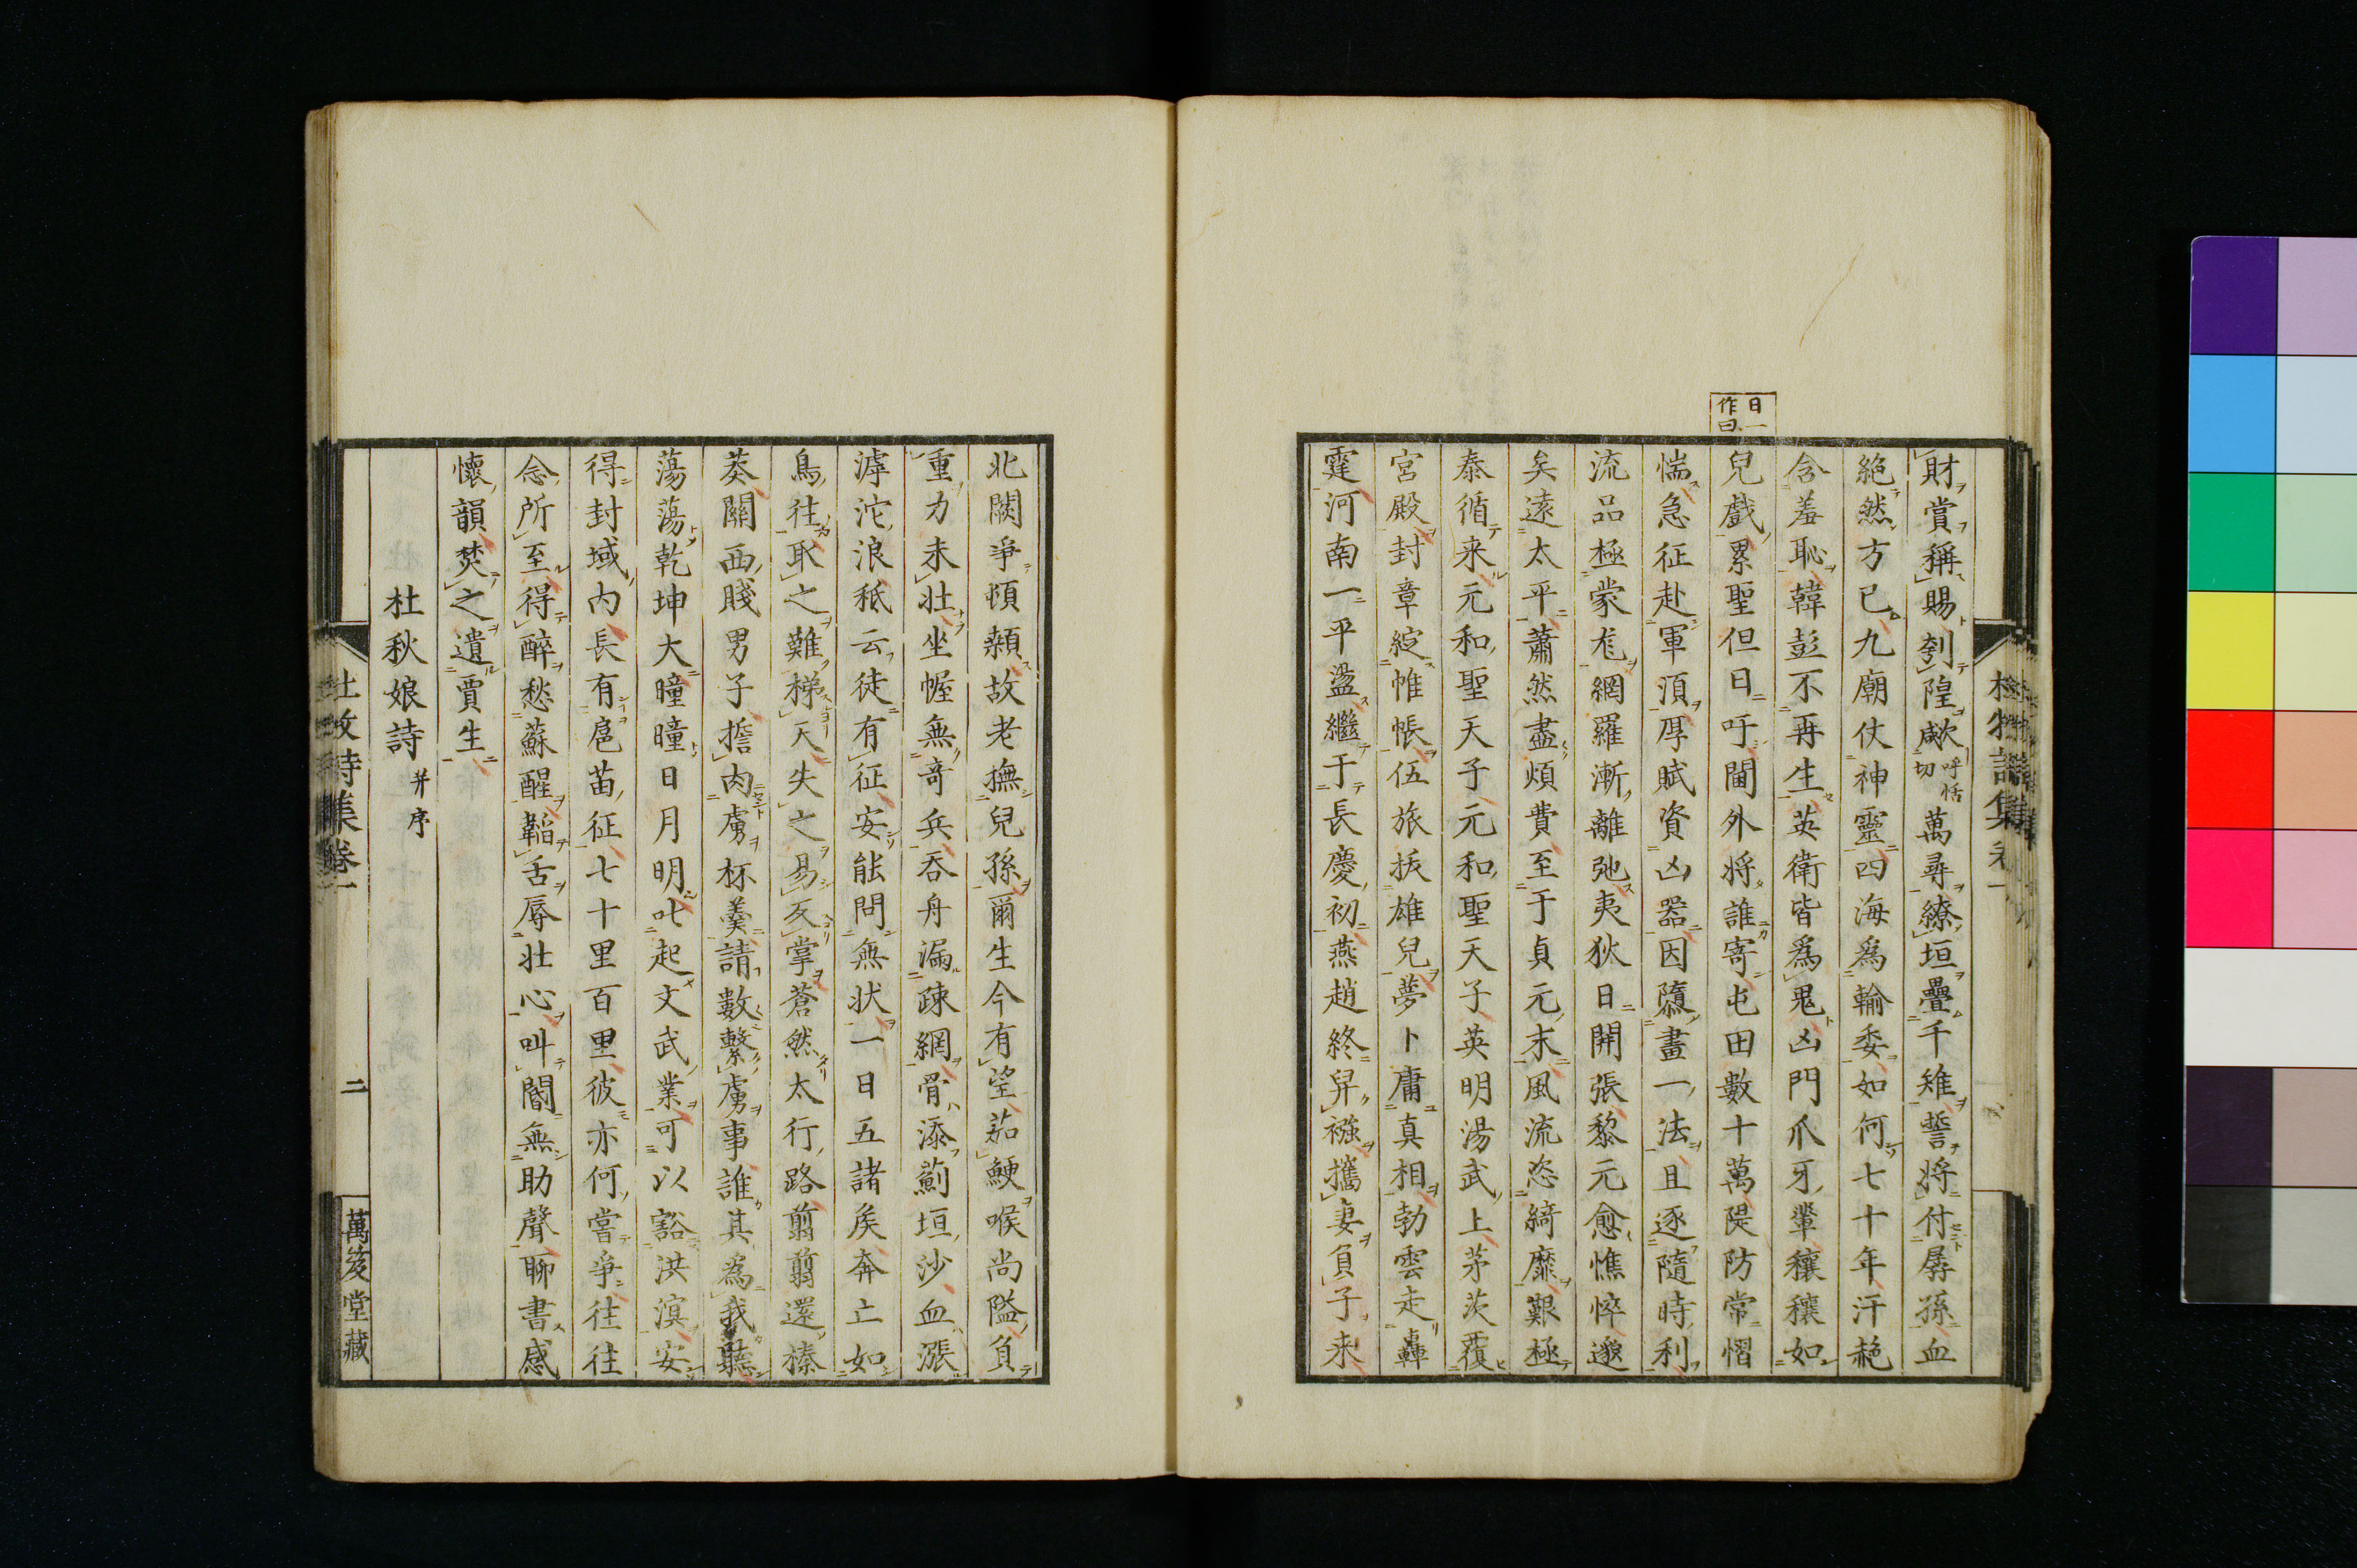 日一作曰
財賞稱賜刳隍歁呼恬切萬尋繚垣疊千雉誓將付孱孫血
絶然方已九廟仗神靈四海爲輸委如何七十年汗赩
含羞恥韓彭不再生英衛皆爲鬼凶門爪牙輩穰穰如
兒戯累聖但日吁閫外將誰寄屯田數十萬隄防常慴
惴急征赴軍湏厚賦資凶器因隳畫一法且逐隨時利
流品極蒙尨網羅漸離弛夷狄日開張黎元愈憔悴邈
矣遠太平蕭然盡煩費至于貞元末風流恣綺靡艱極
泰循来元和聖天子元和聖天子英明湯武上茅茨覆
宮殿封章綻帷帳伍旅拔雄兒夢卜庸真相勃雲走轟
霆河南一平盪繼于長慶初燕趙終舁襁攜妻負子来
北闕爭頓顙故老撫兒孫爾生今有望茹鯁喉尚隘負
重力未壯坐幄無奇兵吞舟漏疎網骨添薊垣沙血漲
滹沱浪秖云徒有征安能問無状一日五諸矦奔亡如
鳥往取之難梯天失之易反掌蒼然太行路翦翦還榛
莽關西賤男子擔肉虜杯羹請數繫虜事誰其為我聽
蕩蕩乾坤大曈曈日月明叱起文武業可以豁洪溟安
得封域內長有扈苗征七十里百里彼亦何嘗爭往往
念所至得醉愁蘇醒韜舌辱壯心叫閽無助聲聊書感
懷韻焚之遺賈生
杜秋娘詩并序
杜牧詩集卷一
二
萬笈堂藏